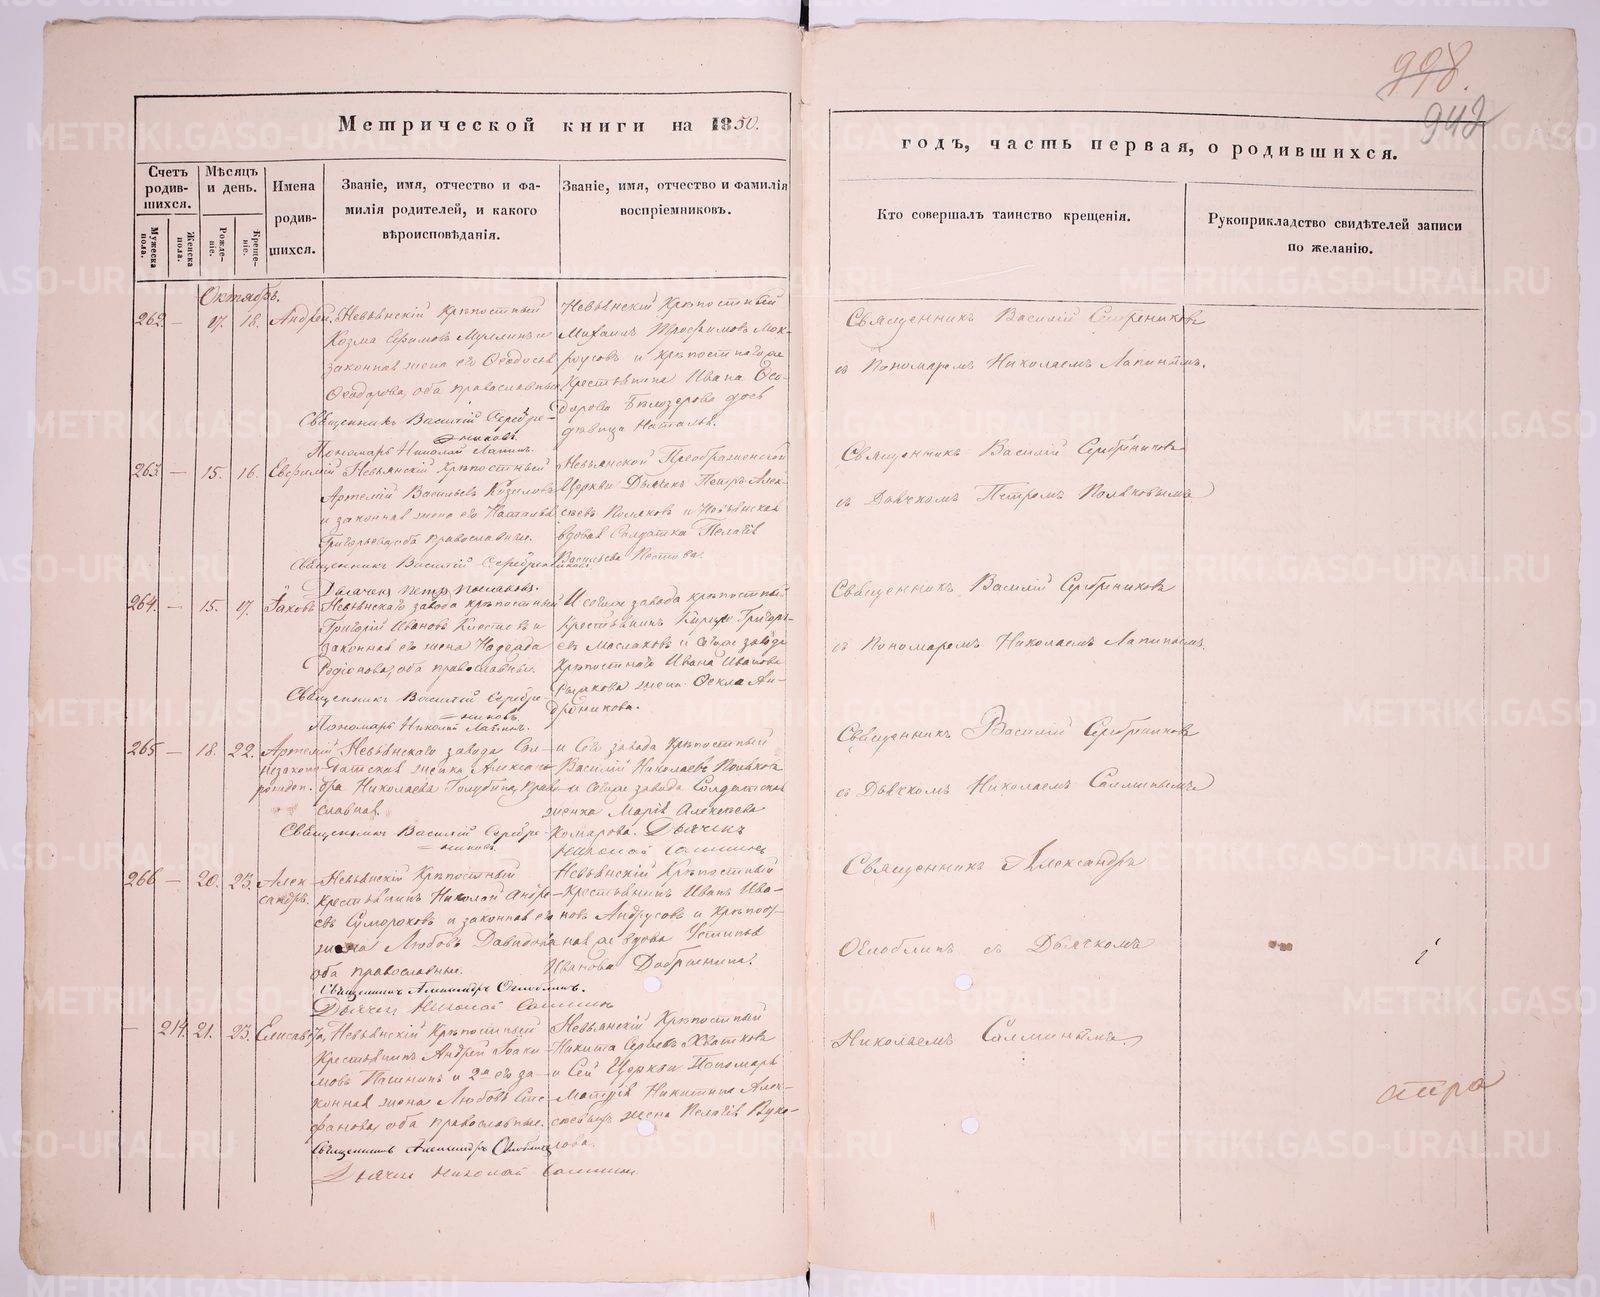 998.
942
Метрической книги на 1850.
годъ, часть первая, о родившихся.
Счетъ родив-
шихся.
Мужеска пола.
Женска пола.
Мѣсяцъ и день.
Рожде-
ніе.
Креще-
ніе.
Имена
родив-
шихся.
Званіе, имя, отчество и фа-
милія родителей, и какого
вѣроисповѣданія.
Званіе, имя, отчество и фамилія
воспріемниковъ.
Кто совершалъ таинство крещенія.
Рукоприкладство свидѣтелей записи
по желанію.
Октябрь.
262. — 17. 18. Андрей.
Невьянскій крѣпостный
Козма Ефимовъ
законная жена его Ѳеодосья
Ѳеодорова, оба православные
Священникъ Василій Серебре-
никовъ
Пономарь Николай Лапинъ.
Невьянскій крѣпостный
Михаилъ Трофимовъ Мок-
роусовъ и крѣпостнаго
Крестьянина Ивана Ѳео-
дорова Бѣлозерова дочь
дѣвица Наталья.
Священникъ Василій Серебрениковъ
съ Пономаремъ Николаемъ Лапинымъ.
263. — 15. 16. Евфимій
Невьянскій крѣпостный
Артемій Васильевъ
и законная жена его Наталья
Григорьева, оба православные.
Священникъ Василій Серебрениковъ
Дьячекъ Петръ Поляковъ.
Невьянской Преображенской
Церкви Дьячекъ Петръ Алек-
сѣевъ Поляковъ и Невьянская
вдовая Солдатка Пелагія
Васильева Пестова.
Священникъ Василій Серебрениковъ
съ Дьячкомъ Петромъ Поляковымъ
264. — 15. 17. Іаковъ
Невьянскаго завода крѣпостный
Григорій Ивановъ и
законная его жена Надежда
Родіонова, оба православные.
Священникъ Василій Серебре-
никовъ
Пономарь Николай Лапинъ.
И сегоже завода крѣпостный
Крестьянинъ Григорь-
евъ Маслаковъ и сегоже завода
Крѣпостнаго Ивана Иванова
жена Ѳекла Ан-
дроникова.
Священникъ Василій Серебрениковъ
съ Пономаремъ Николаемъ Лапинымъ.
265 — 18. 22. Артемій
незаконо
рожден.
Невьянскаго завода Сол-
датская женка Алексан-
дра Николаева Голубина, право-
славная.
Священникъ Василій Серебре-
никовъ
и Сего завода Крѣпостный
Василій Николаевъ Поляков
и сегоже завода Солдатская
женка Марія Алексѣева
Комарова. Дьячекъ
Николай Салминъ
Священникъ Василій Серебрениковъ
съ Дьячкомъ Николаемъ Салминымъ
266 — 20. 23. Алек-
сандръ.
Невьянскій Крѣпостный
крестьянинъ Николай Андре-
евъ Сумороковъ и законная его
жена Любовь Давидова
оба православные.
Священникъ Александръ Оглоблинъ.
Дьячекъ Николай Салминъ
Невьянскій Крѣпостный
Крестьянинъ Иванъ Ива-
новъ Андрусовъ и Крѣпост-
ная вдова Устинья
Иванова Добрынина.
Священникъ Александръ
Оглоблинъ съ Дьячкомъ
Николаемъ Салминымъ.
— 214. 21. 23. Елисавета,
Невьянскій Крѣпостный
Крестьянинъ Андрей Іоаки-
мовъ Пашнинъ и 2я его за-
конная жена Любовь Сте-
фанова, оба православные.
Священникъ Александръ Оглоблинъ
Дьячекъ Николай Салминъ.
Невьянскій Крѣпостный
Никита Сергѣевъ Хватковъ
и Сей Церкви Пономаря
Никитина Алек-
сѣева жена Пелагія Вуко-
лова.
METRIKI.GASO-URAL.RU